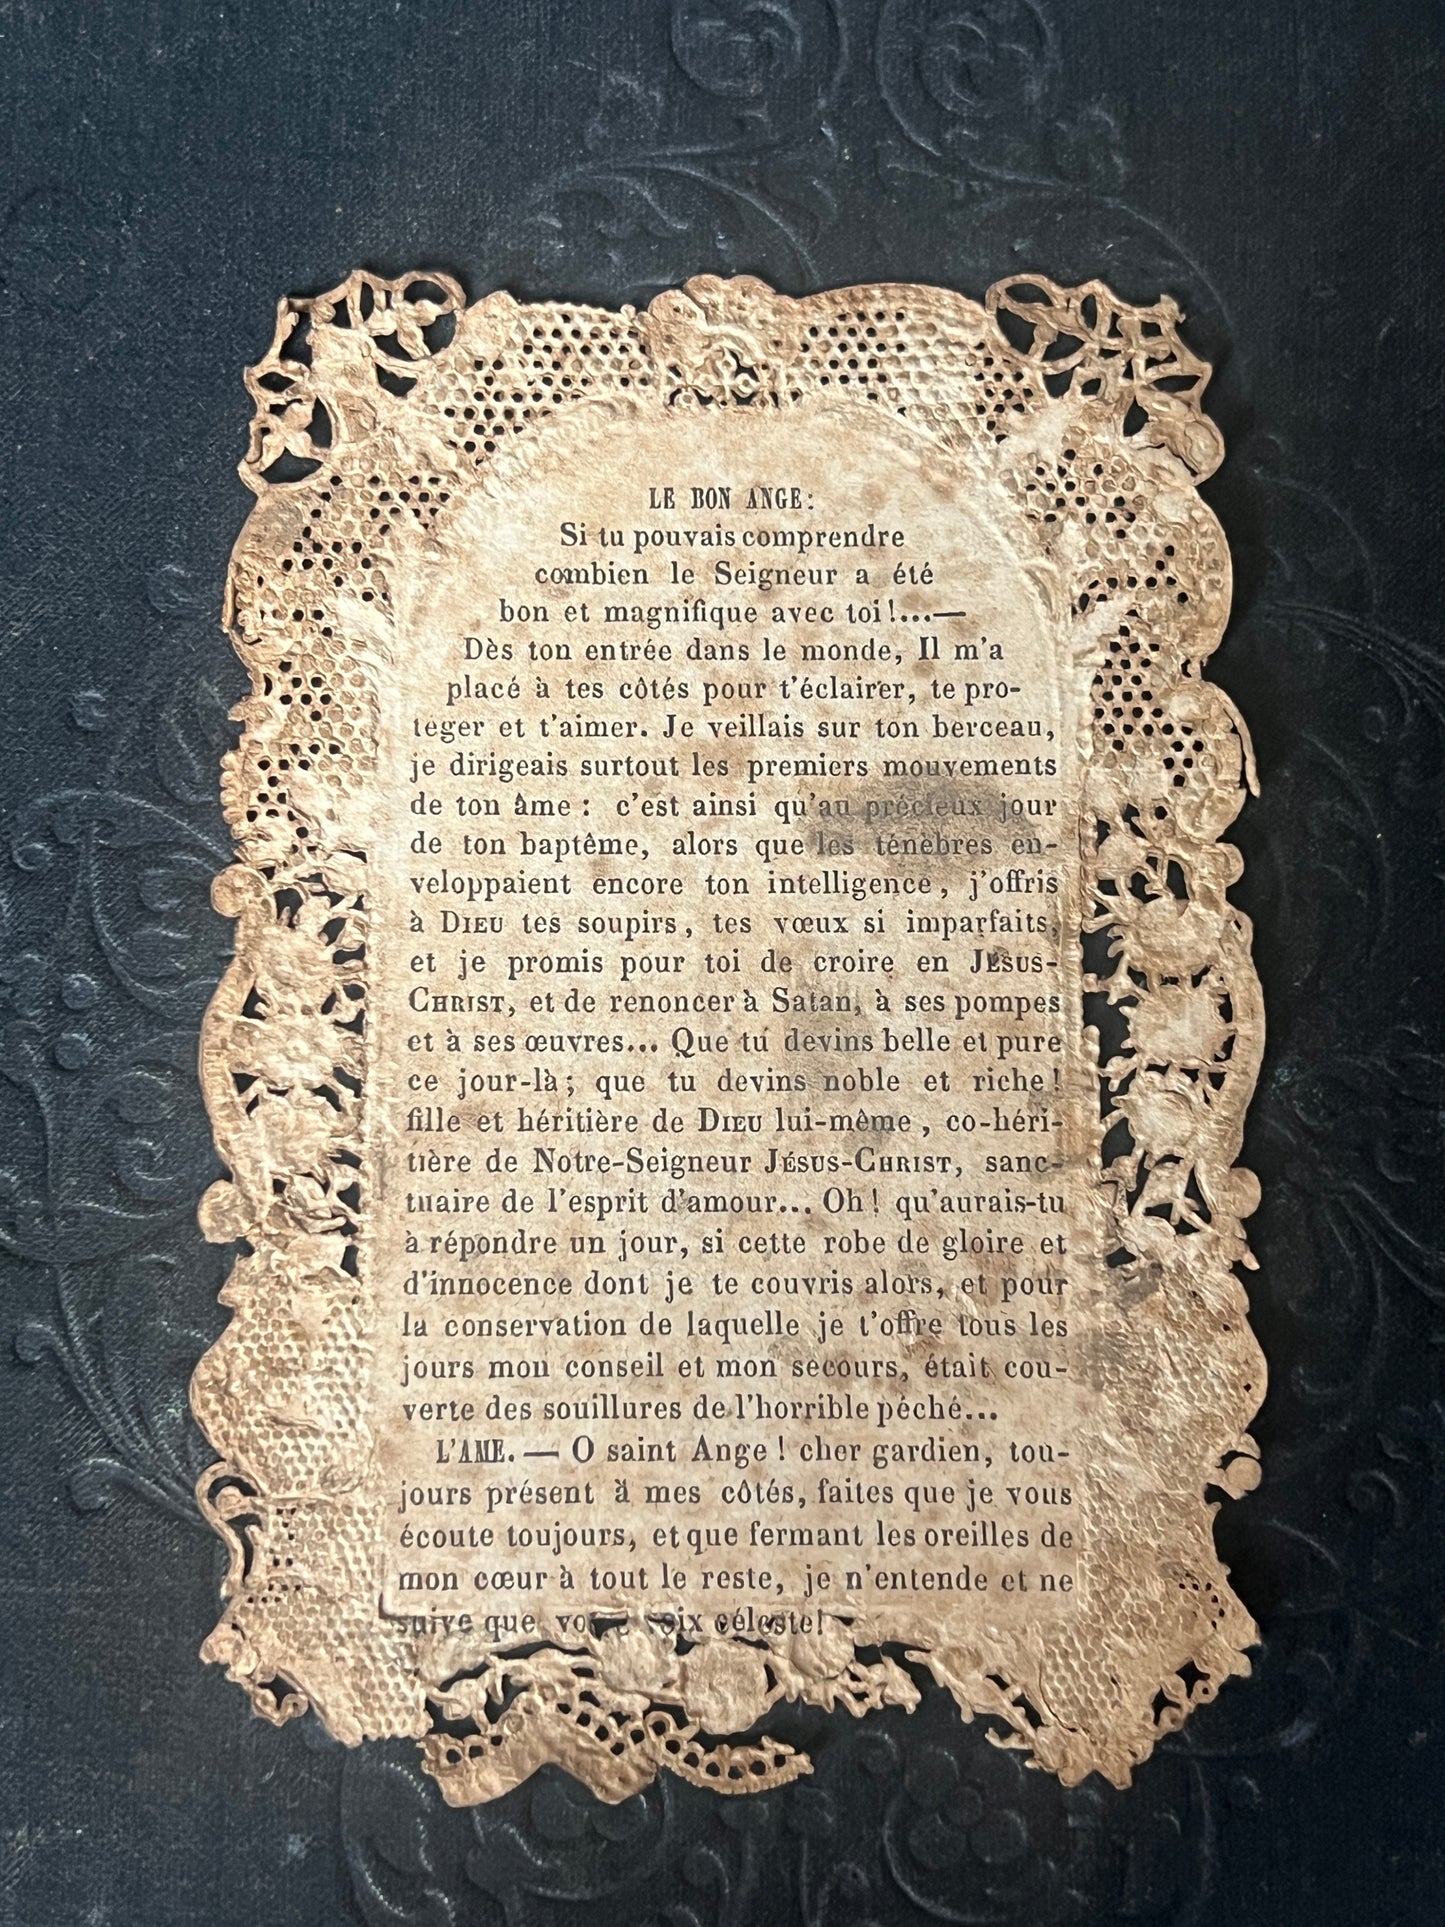 LE BON ANGE:
Si tu pouvais comprendre
combien le Seigneur a été
bon et magnifique avec toi!...—
Dès ton entrée dans le monde, Il m'a
placé à tes côtés pour t'éclairer, te pro-
teger et t'aimer. Je veillais sur ton berceau,
je dirigeais surtout les premiers mouvements
de ton âme : c'est ainsi qu'au précieux jour
de ton baptême, alors que les ténèbres en-
veloppaient encore ton intelligence, j'offris
à DIEU tes soupirs, tes vœux si imparfaits,
et je promis pour toi de croire en JÉSUS-
CHRIST, et de renoncer à Satan, à ses pompes
et à ses œuvres... Que tu devins belle et pure
ce jour-là; que tu devins noble et riche!
fille et héritière de DIEU lui-même, co-héri-
tière de Notre-Seigneur JÉSUS-CHRIST, sanc-
tuaire de l'esprit d'amour... Oh! qu'aurais-tu
à répondre un jour, si cette robe de gloire et
d'innocence dont je te couvris alors, et pour
la conservation de laquelle je t'offre tous les
jours mon conseil et mon secours, était cou-
verte des souillures de l'horrible péché...
L'AME. — O saint Ange! cher gardien, tou-
jours présent à mes côtés, faites que je vous
écoute toujours, et que fermant les oreilles de
mon cœur à tout le reste, je n'entende et ne
suive que votre voix céleste!